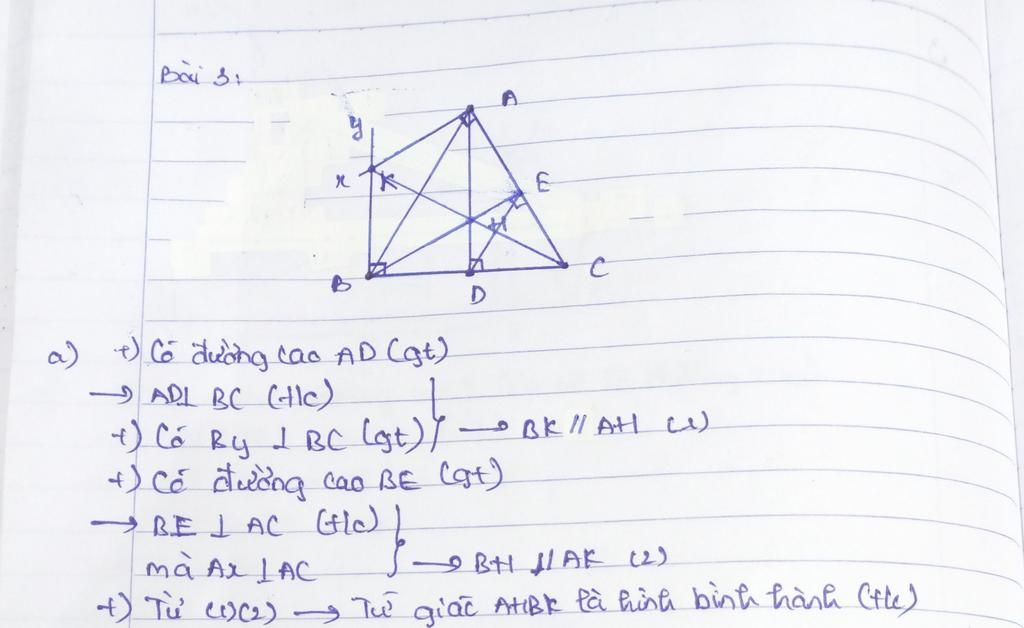 Bài 3:
A
y
x K
E
H
B
D
C
a) +) Có đường cao AD (gt)
→ AD⊥ BC (t/c)
+) Có By ⊥ BC (gt) } → BK // AH (1)
+) Có đường cao BE (gt)
→ BE ⊥ AC (t/c)
mà Ax ⊥ AC } → BH // AK (2)
+) Từ (1)(2) → Tứ giác AHBK là hình bình hành (t/c)